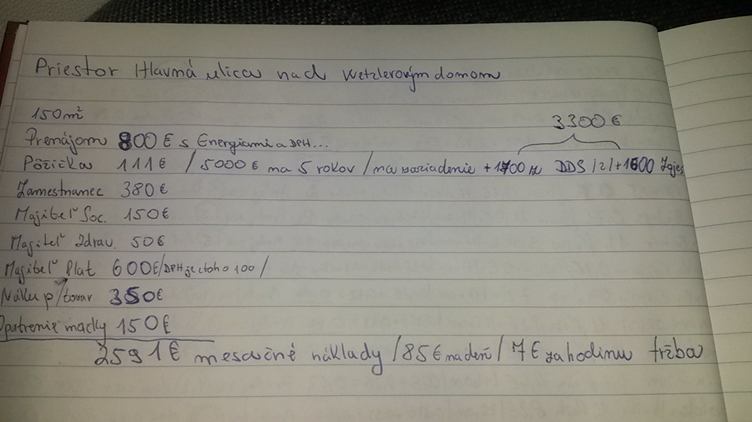 Priestor Hlavná ulica nad Wetzlerovým domom
150m²
3300 €
Prenájom 800 € s Energiami a DPH...
Pôžička 111 € / 5000 € na 5 rokov / na zariadenie + 1700 DDS /2/ + 1600
Zamestnanec 380 €
Majiteľ Soc. 150 €
Majiteľ Zdrav. 50 €
Majiteľ Plat 600 € /DPH je z toho 100/
Nákup/tovar 350 €
Opatrenie mačky 150 €
2591 € mesačné náklady / 85 € na deň / 7 € za hodinu tržba